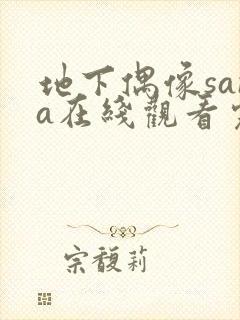 地下偶像sa
a在线觀看
宗馥莉